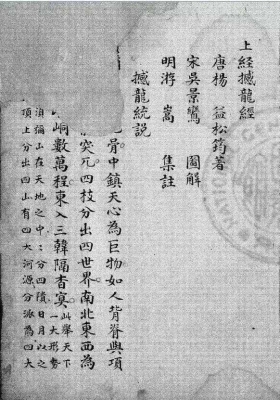 上經撼龍經
唐楊 益松筠著
宋吳景鸞 圖解
明游 嵩 集註
撼龍統説
骨中鎮天心為巨物如人背脊與項
突兀四技分出四世界南北東西為
峒數萬程東入三韓隔杳冥此舉天下
一大形勢
須彌山在天地之中分四隤日月以之
項上分出四山有四大河源分派為四大